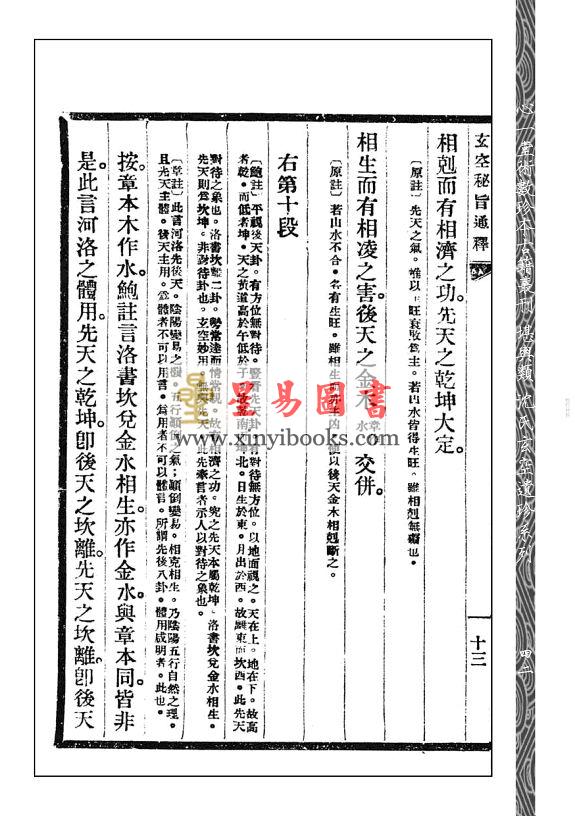 心一堂術數珍本古籍叢刊 堪輿類 沈氏玄空遺珍系列
四二
玄空秘旨通釋
十三
相剋而有相濟之功。先天之乾坤大定。
〔原註〕先天之氣。惟以旺衰敗為主。若山水皆得生旺。雖相剋無礙也。
相生而有相凌之害。後天之金木交併。
〔原註〕若山水不合。各有生旺。雖相生以後天金木相剋斷之。
右第十段
〔鮑註〕平視後天卦。有方位無對待。豎看先天卦有對待無方位。以地面視之。天在上。地在下。故高
者乾。而低者坤。天之黃道高於午低於子。故乾南坤北。日生於東。月出於西。故離東而坎西。此先天
對待之象也。洛書坎兌二卦。勢常逵而情常親。故有相濟之功。究之先天本屬乾坤。洛書坎兌金水相生。
先天則為坎坤。非對待卦也。玄空妙用。無先天。此先秦言者示人以對待之象也。
〔章註〕此言河洛先後天。陰陽變易之機。五行顛倒之氣。顛倒變易。相克相生。乃陰陽五行自然之理。
且先天主體。後天主用。為體者不可以用言。為用者不可以體言。所謂先後八卦。體用咸明者。此也。
按章本木作水。鮑註言洛書坎兌金水相生。亦作金水。與章本同。皆非
是。此言河洛之體用。先天之乾坤。卽後天之坎離。先天之坎離。卽後天
星易圖書
www.xinyibooks.com